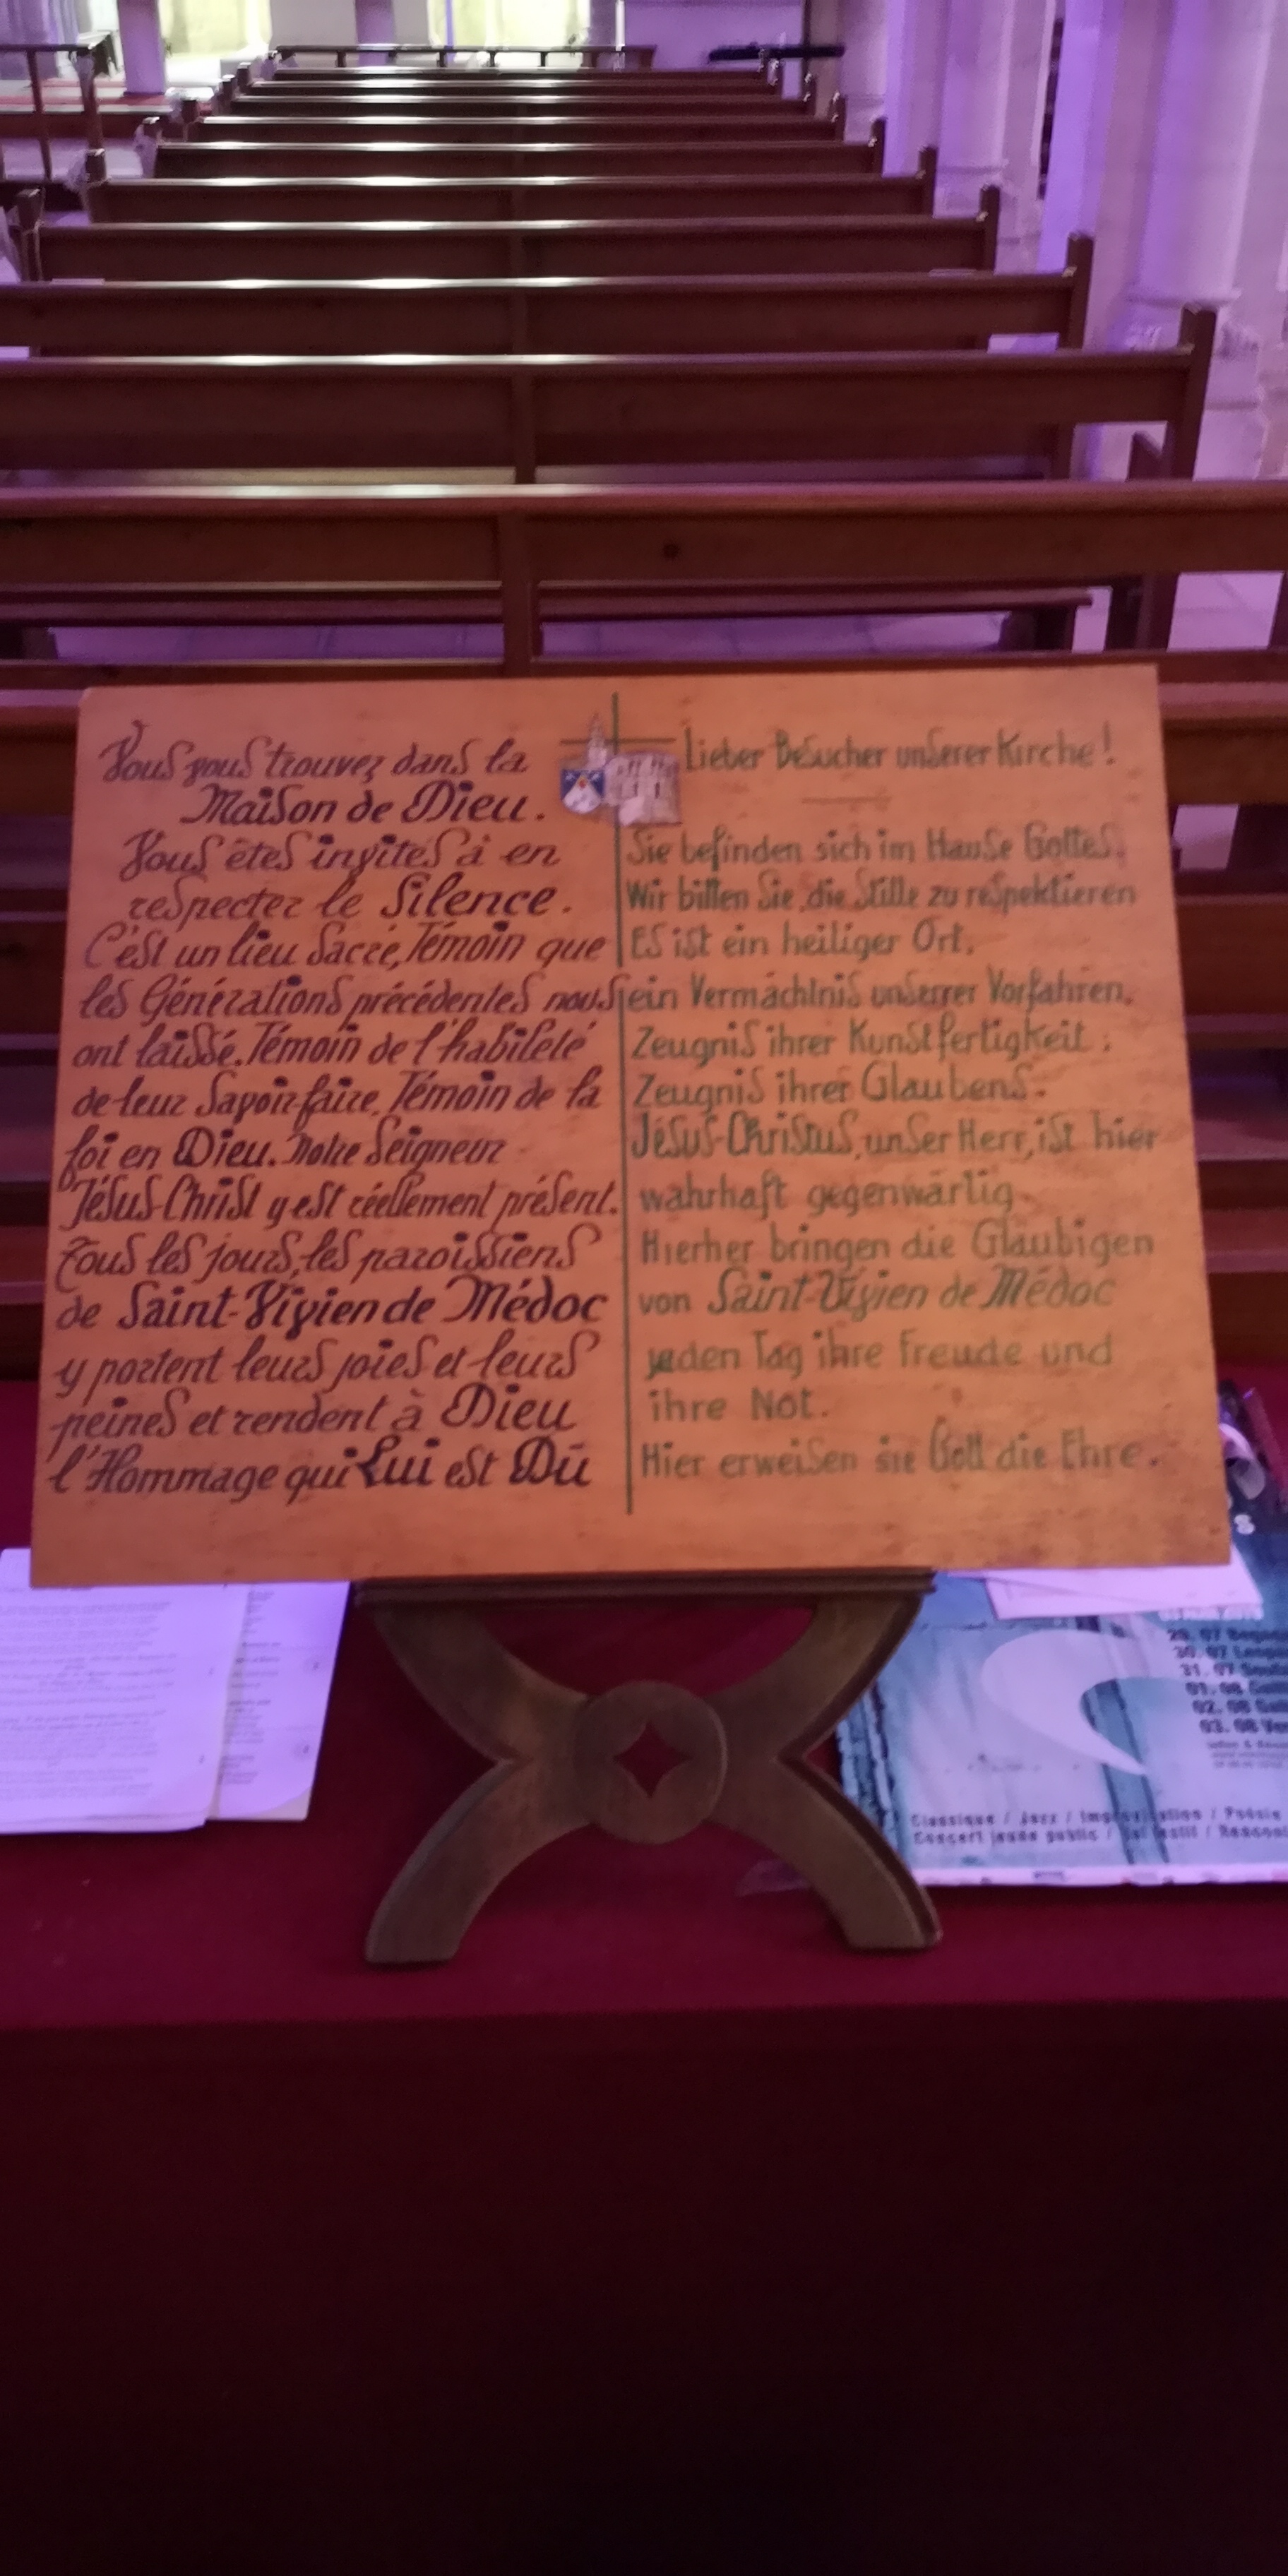 Vous vous trouvez dans la
Maison de Dieu.
Vous êtes invités à en
respecter le Silence.
C'est un lieu Sacré, Témoin que
les Générations précédentes nous
ont laissé. Témoin de l'habileté
de leur Savoir faire. Témoin de la
foi en Dieu. Notre Seigneur
Jésus-Christ y est réellement présent.
Tous les jours, les paroissiens
de Saint-Vivien de Médoc
y portent leurs joies et leurs
peines et rendent à Dieu
l'Hommage qui Lui est Dû
Lieber Besucher unserer Kirche!
Sie befinden sich im Hause Gottes.
Wir bitten Sie, die Stille zu respektieren
Es ist ein heiliger Ort.
ein Vermächtnis unserrer Vorfahren.
Zeugnis ihrer Kunstfertigkeit.
Zeugnis ihrer Glaubens.
Jésus-Christus, unser Herr, ist hier
wahrhaft gegenwärtig.
Hierher bringen die Gläubigen
von Saint-Vivien de Médoc
jeden Tag ihre Freude und
ihre Not.
Hier erweisen sie Gott die Ehre.
29.07
30.07
31.07
01.08
02.08
03.08
Classique / Jazz / / Poésie
Concert jeune public /